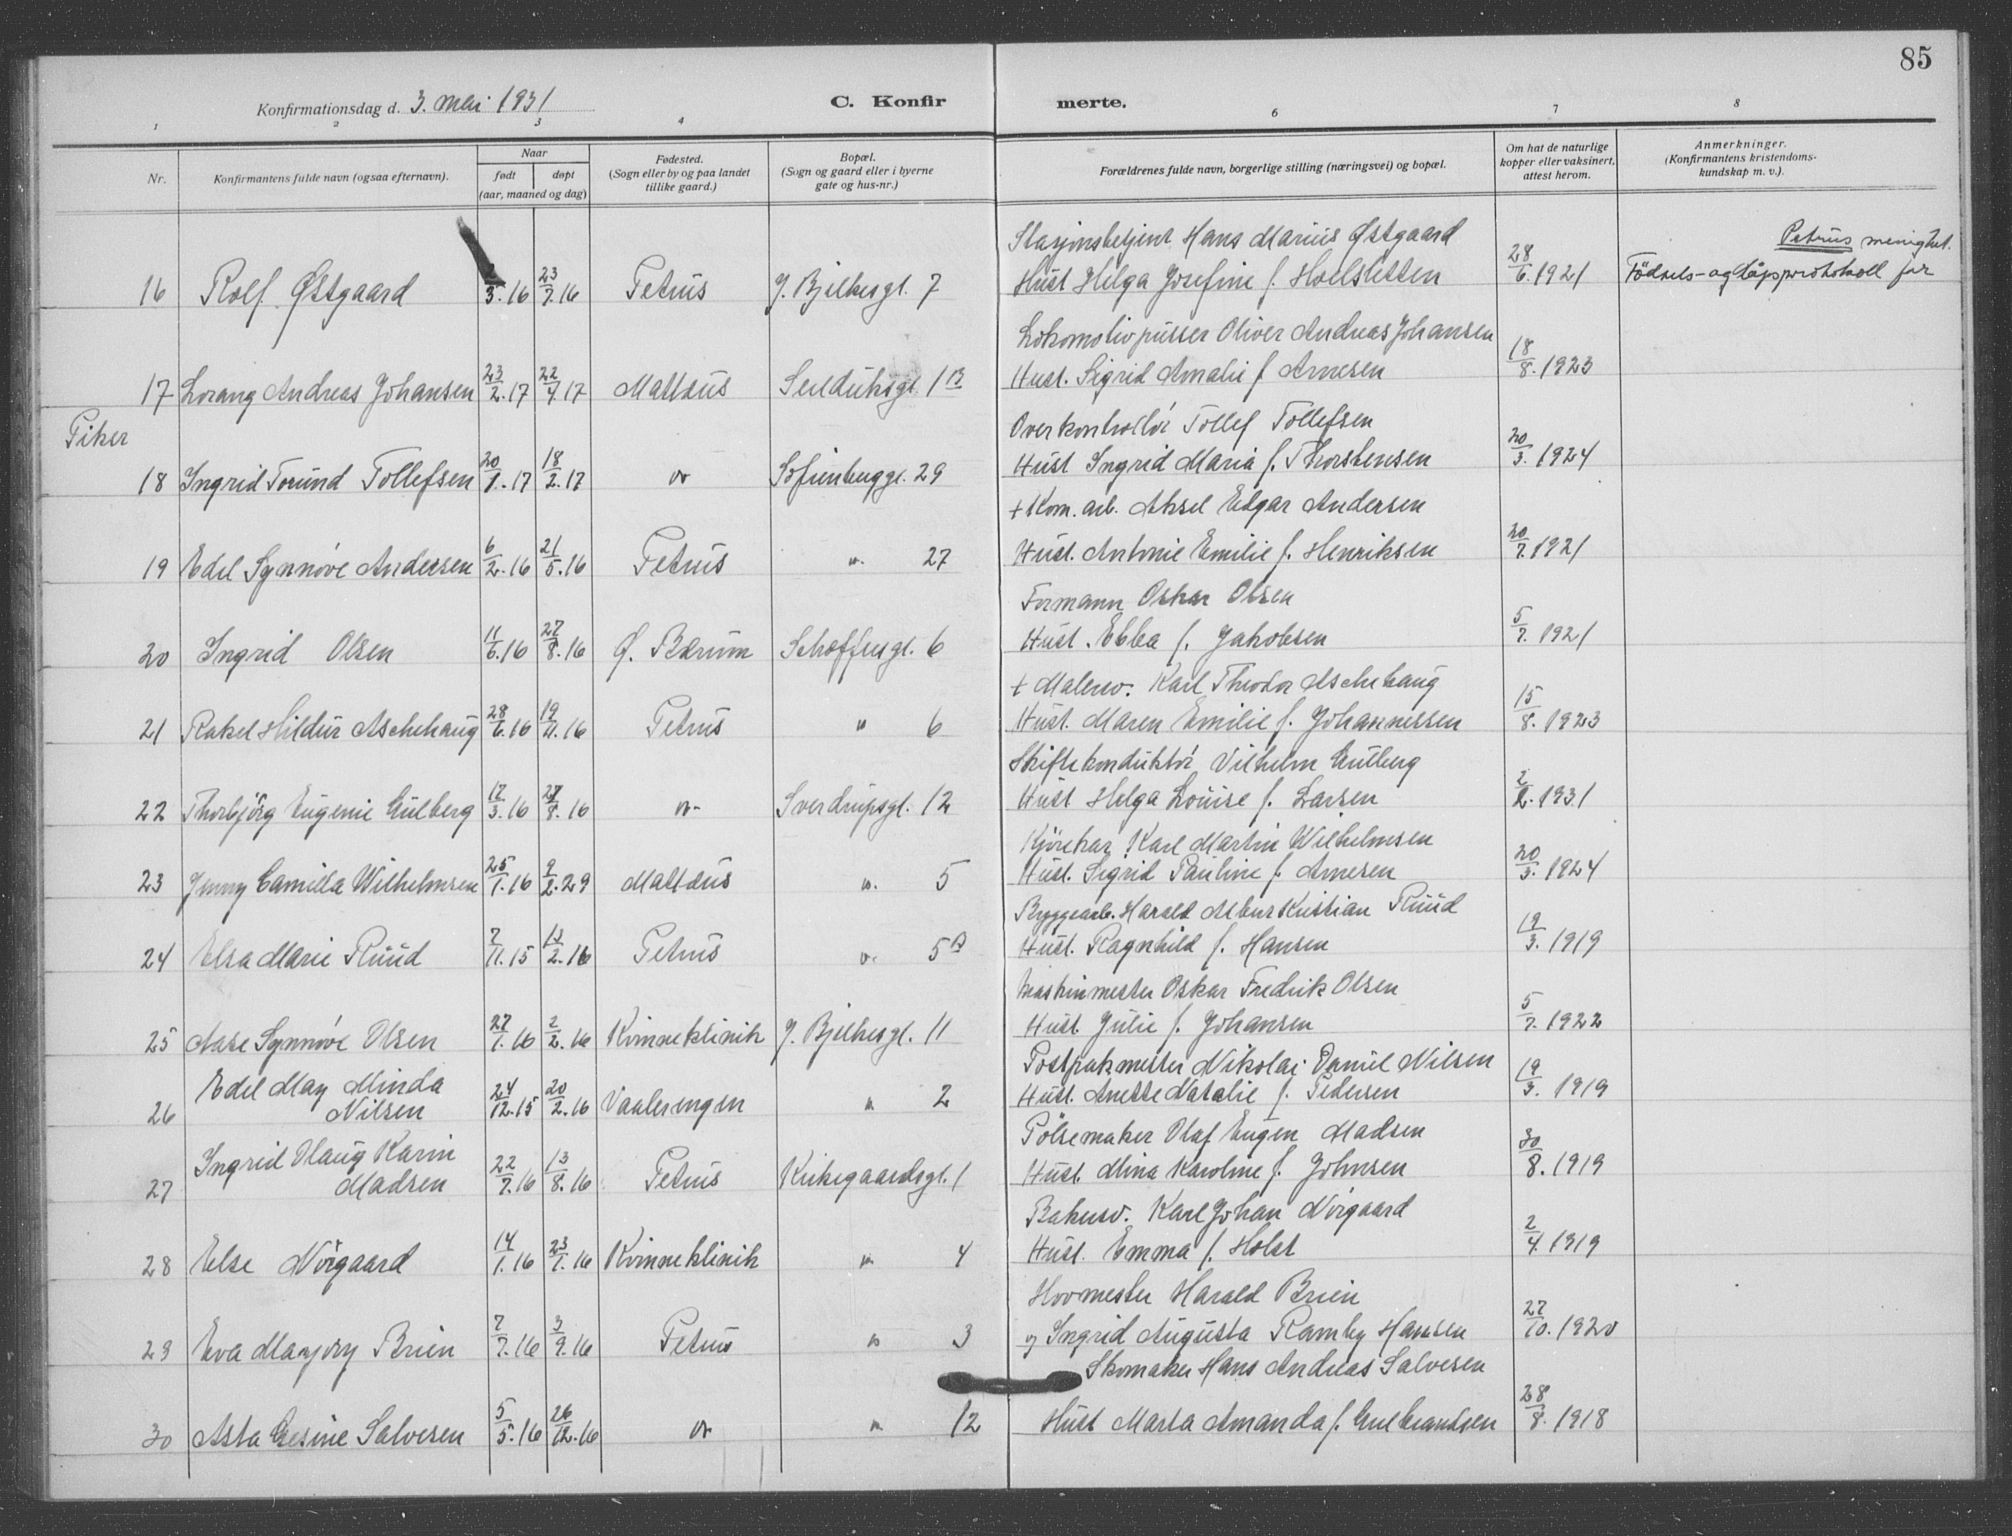 85
Konfirmationsdag d. 3. mai 1931 C. Konfir merte.
1 2 3 4 6 7 8
Nr. Konfirmantens fulde navn (ogsaa efternavn). Naar født døpt (aar, maaned og dag) Fødested. (Sogn eller by og paa landet tillike gaard.) Bopæl. (Sogn og gaard eller i byerne gate og hus-nr.) Forældrenes fulde navn, borgerlige stilling (næringsvei) og bopæl. Om hat de naturlige kopper eller vaksinert, attest herom. Anmerkninger. (Konfirmantens kristendoms-kundskap m. v.).
Stasjonsbetjent Hans Marius Østgaard Petrus menighet.
16 Rolf Østgaard 3.16 23/7.16 Petrus J. Bjelkesgt. 7 Hust Helga Josefine f. 28/6.1921 Fødsels- og dåpsprotokoll for
Lokomotivpusser Oliver Andreas Johansen
17 Lorang Andreas Johansen 23/2.17 22/4.17 Mattæus 1 B Hust. Sigrid Amalie f Arnesen 18/8.1923
Piker
Overkontrollör Tollef Tollefsen
18 Ingrid Torund Tollefsen 20/1.17 18/2.17 " Sofienberggt. 29 Hust Ingrid Maria f. Thorstensen 20/3.1924
+ Kom. arb. Aksel Edgar Andersen
19 Edel Synnöve Andersen 6/2.16 21/5.16 Petrus " 27 Hust. Antonie Emilie f. Henriksen 20/7.1921
Formann Oskar Olsen
20 Ingrid Olsen 11/6.16 27/8.16 Ø. Bærum Schoffesgt. 6 Hust. Ebba f. Jakobsen 5/7.1921
+ Malersv. Karl Theodor Aschehaug
21 Rakel Hildur Aschehaug 28/6.16 19/11.16 Petrus " 6 Hust. Maren Emilie f. Johannessen 15/8.1923
Skiftekonduktör Vilhelm Gulberg
22 Thorbjörg Eugenie Gulberg 12/3.16 27/8.16 " Sverdrupsgt. 12 Hust Helga Louise f. Larsen 2/2.1931
Kjörekar Karl Martin Wilhelmsen
23 Jenny Camilla Wilhelmsen 25/1.16 9/2.29 Mattæus " 5 Hust. Sigrid Pauline f. Arnesen 20/3.1924
Byggearb. Harald Albert Kristian Ruud
24 Elsa Marie Ruud 7/11.15 13/2.16 Petrus " 5 B Hust. Ragnhild f. Hansen 19/3.1919
Maskinmester Oskar Fredrik Olsen
25 Aase Synnöve Olsen 27/1.16 2/2.16 Kvinneklinik J. Bjelkesgt. 11 Hust. Julie f. Johansen 5/7.1922
Edel May Minda Postpakmester Nikolai Daniel Nilsen
26 Nilsen 24/12.15 20/2.16 Vaalerengen " 2 Hust. Anette Natalie f. Pedersen 19/3.1919
Ingrid Olaug Karin Pölsemaker Olaf Eugen Madsen
27 Madsen 22/7.16 13/8.16 Petrus Kirkegaardsgt. 1 Hust. Mina Karoline f. Johnsen 30/8.1919
Bakersv. Karl Johan Nörgaard
28 Else Nörgaard 14/1.16 23/1.16 Kvinneklinik " 4 Hust. Emma f. Holst 2/4.1919
Hovmester Harald Brien
29 Eva Marjory Brien 7/7.16 3/9.16 Petrus " 3 og Ingrid Augusta Ramby Hansen 27/10.1920
Skomaker Hans Andreas Salvesen
30 Asta Gesine Salvesen 5/5.16 26/12.16 " " 12 Hust Marta Amanda f. Gulbrandsen 28/8.1918